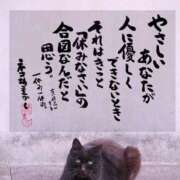 やさしい
あなたが
人に優しく
できないとき
それはきっと
「休みなさい」の
合図なんだと
思う。